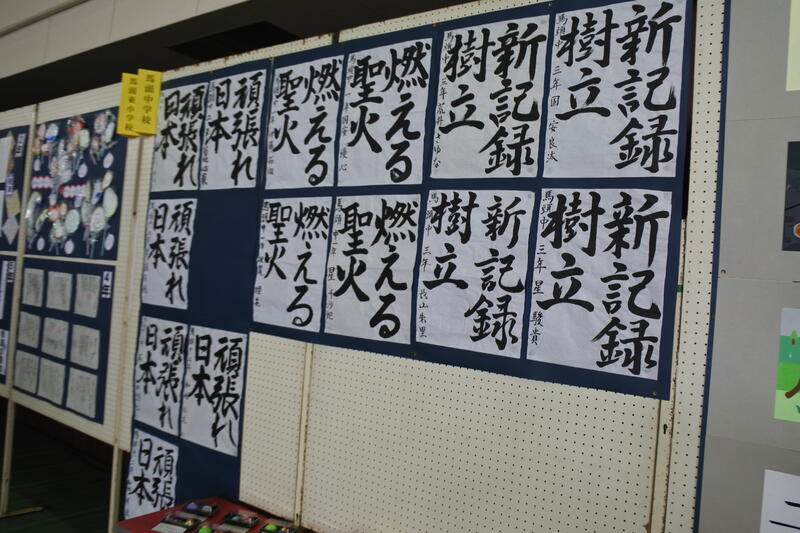 馬頭東小学校
馬頭中学校
頑張れ
日本
頑張れ
日本
燃える
聖火
燃える
聖火
新記録
樹立
三年 荒井さゆな
新記録
樹立
馬頭中 三年 国安良汰
頑張れ
日本
燃える
聖火
燃える
聖火
新記録
樹立
馬頭中 三年 長山朱里
新記録
樹立
馬頭中 三年 星 駿貴
頑張れ
日本
頑張れ
日本
頑張れ
日本